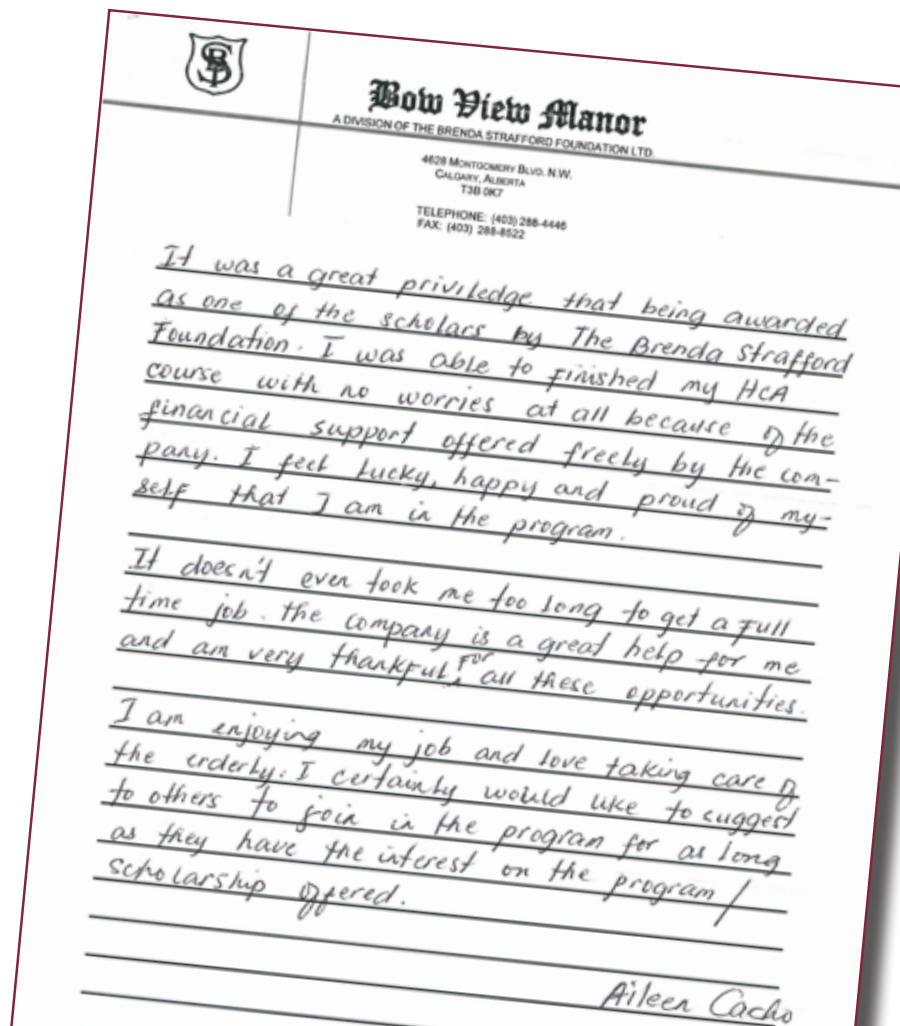 Bow View Manor
A DIVISION OF THE BRENDA STRAFFORD FOUNDATION LTD.
4628 MONTGOMERY BLVD. N.W.
CALGARY, ALBERTA
T3B 0K7
TELEPHONE: (403) 288-4446
FAX: (403) 288-8522
It was a great priviledge that being awarded
as one of the scholars by The Brenda Strafford
Foundation. I was able to finished my HCA
course with no worries at all because of the
financial support offered freely by the com-
pany. I feel lucky, happy and proud of my-
self that I am in the program.
It doesn't even took me too long to get a full
time job. The company is a great help for me
and am very thankful, for all these opportunities.
I am enjoying my job and love taking care of
the erderly. I certainly would like to suggest
to others to join in the program for as long
as they have the interest on the program /
scholarship offered.
Aileen Cacho